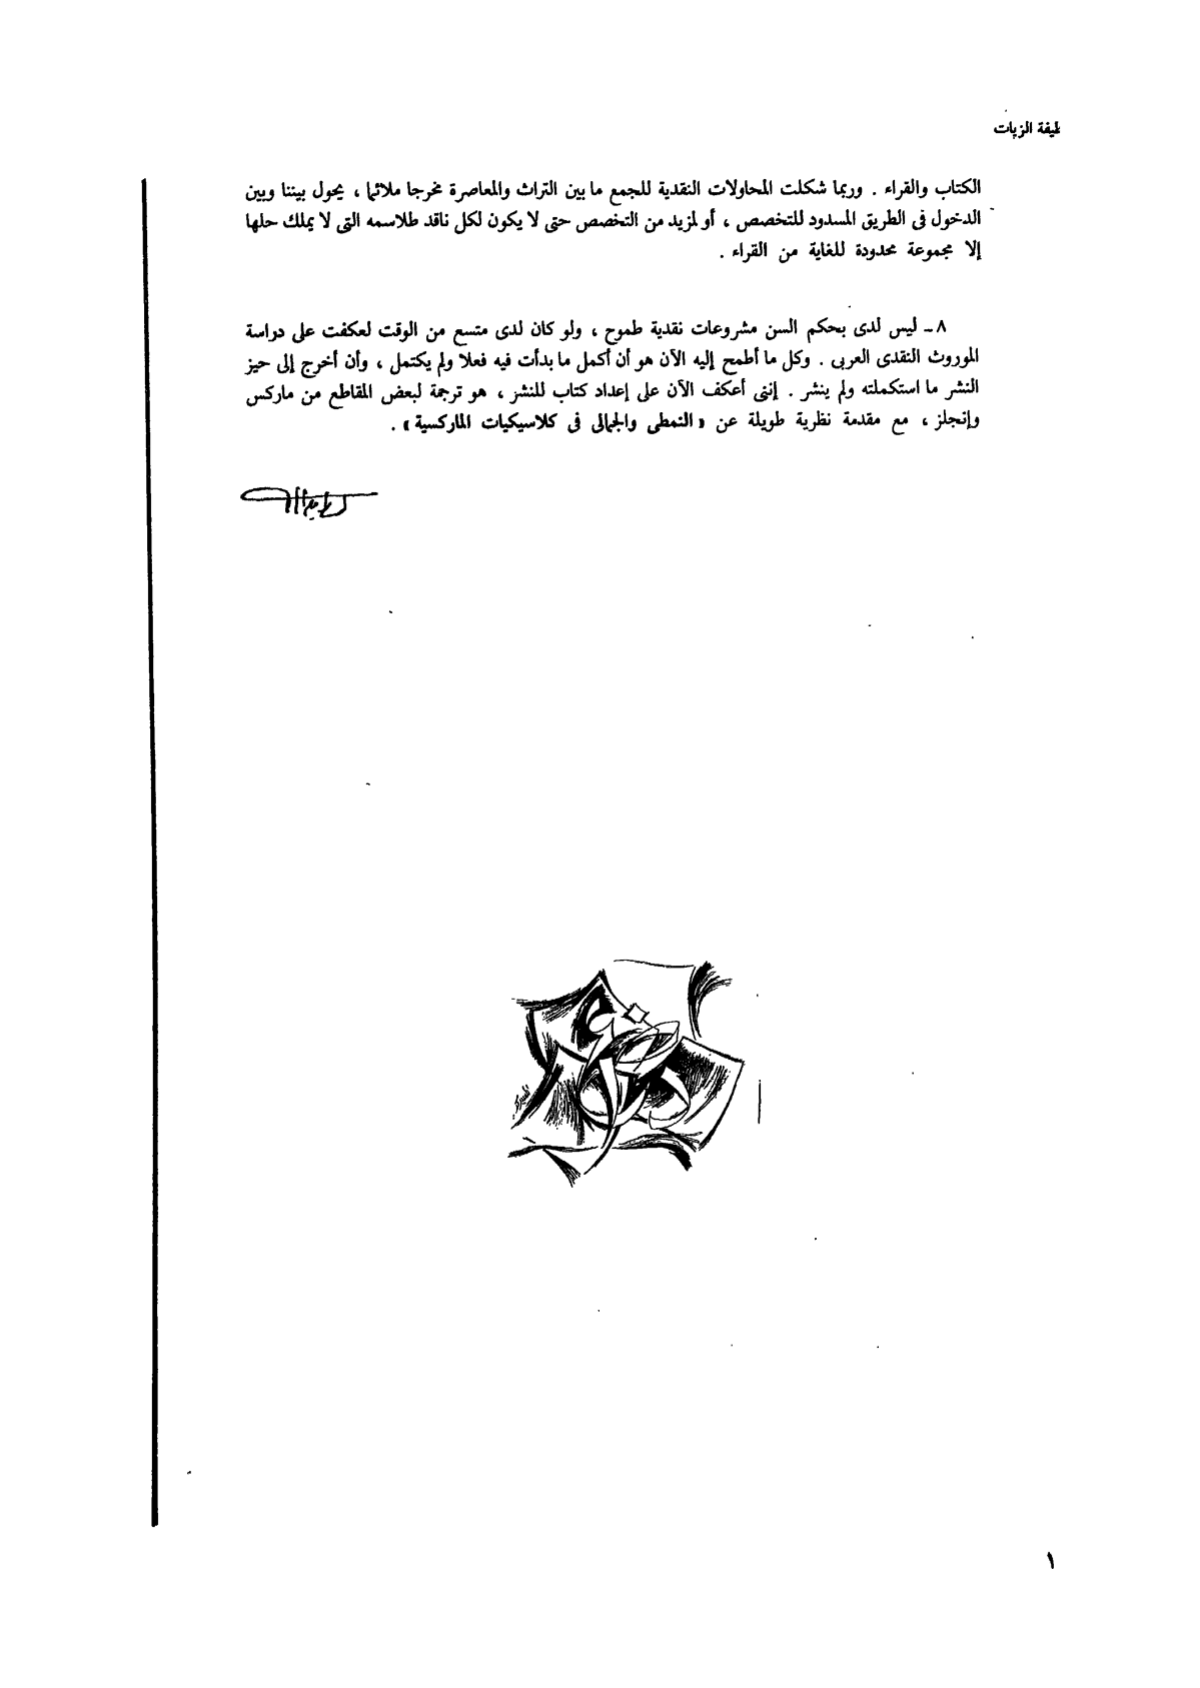 لطيفة الزيات
الكتاب والقراء . وربما شكلت المحاولات النقدية للجمع ما بين التراث والمعاصرة مخرجا ملائما ، يحول بيننا وبين
الدخول فى الطريق المسدود للتخصص ، أو لمزيد من التخصص حتى لا يكون لكل ناقد طلاسمه التى لا يملك حلها
إلا مجموعة محدودة للغاية من القراء .
٨ ـ ليس لدى بحكم السن مشروعات نقدية طموح ، ولو كان لدى متسع من الوقت لعكفت على دراسة
الموروث النقدى العربى . وكل ما أطمح إليه الآن هو أن أكمل ما بدأت فيه فعلا ولم يكتمل ، وأن أخرج إلى حيز
النشر ما استكملته ولم ينشر . إننى أعكف الآن على إعداد كتاب للنشر ، هو ترجمة لبعض المقاطع من ماركس
وإنجلز ، مع مقدمة نظرية طويلة عن « النمطى والجمالى فى كلاسيكيات الماركسية » .
١